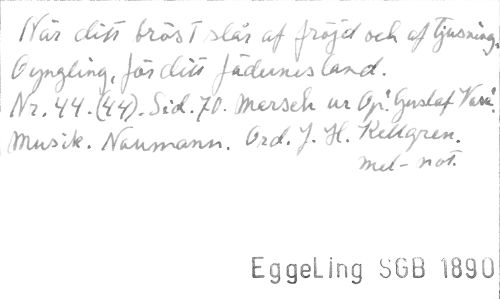 När ditt bröst slår af fröjd och af tjusning,
O yngling, för ditt fädernesland.
Nr. 44. (44). Sid. 70. Marsch ur Op. Gustaf Vasa.
Musik. Naumann. Ord. J. H. Kellgren.
mel-not.
EggeLing SGB 1890